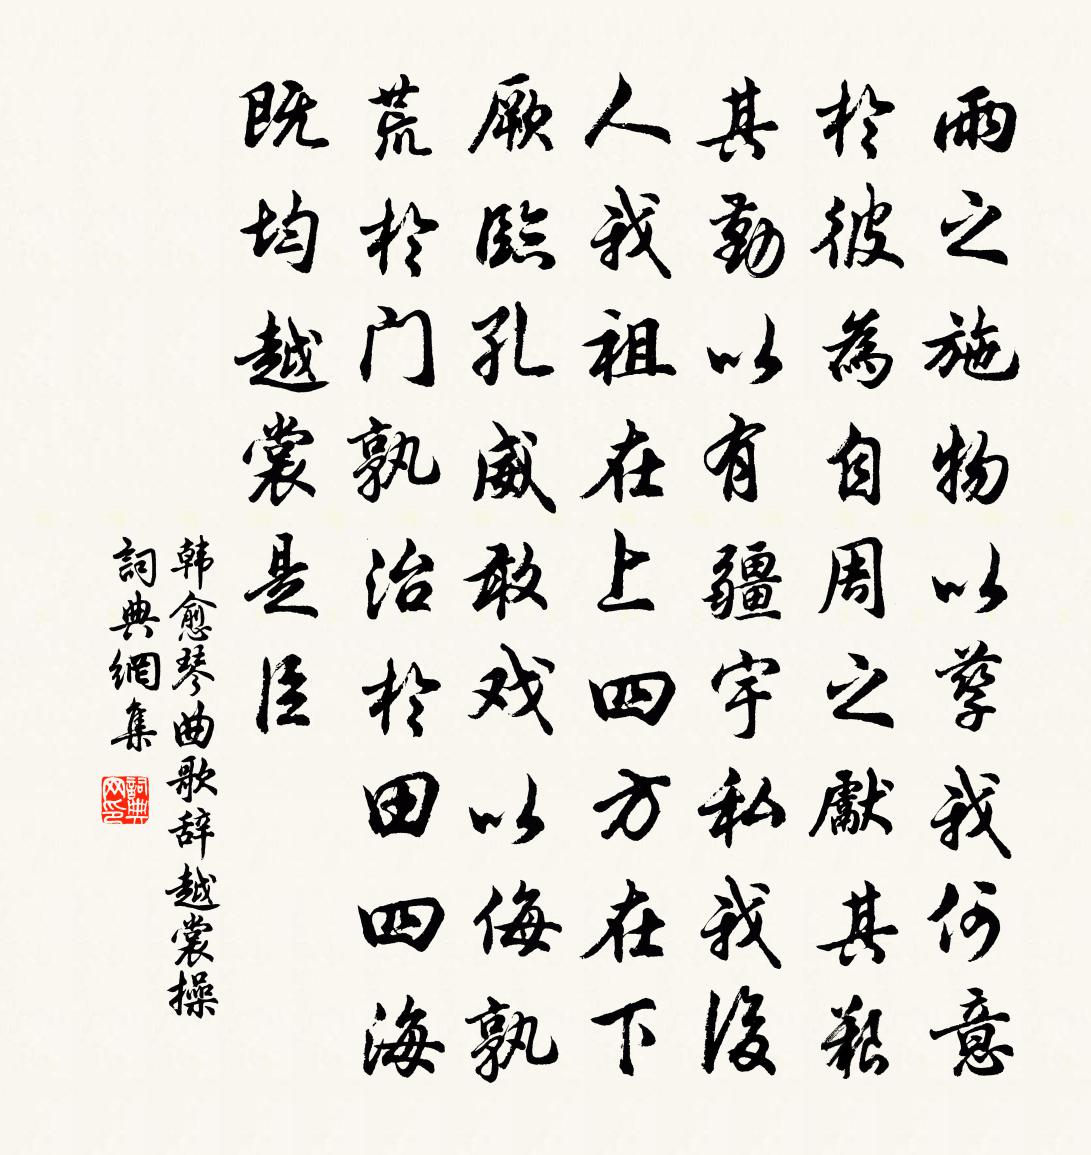 雨之施物以孳我何意
於彼為自周之獻其艱
其勤以有疆宇私我後
人我祖在上四方在下
厥臨孔威敢戏以侮孰
荒於门孰治於田四海
既均越裳是臣
韩愈琴曲歌辞越裳操
詞典網集
詞典网印